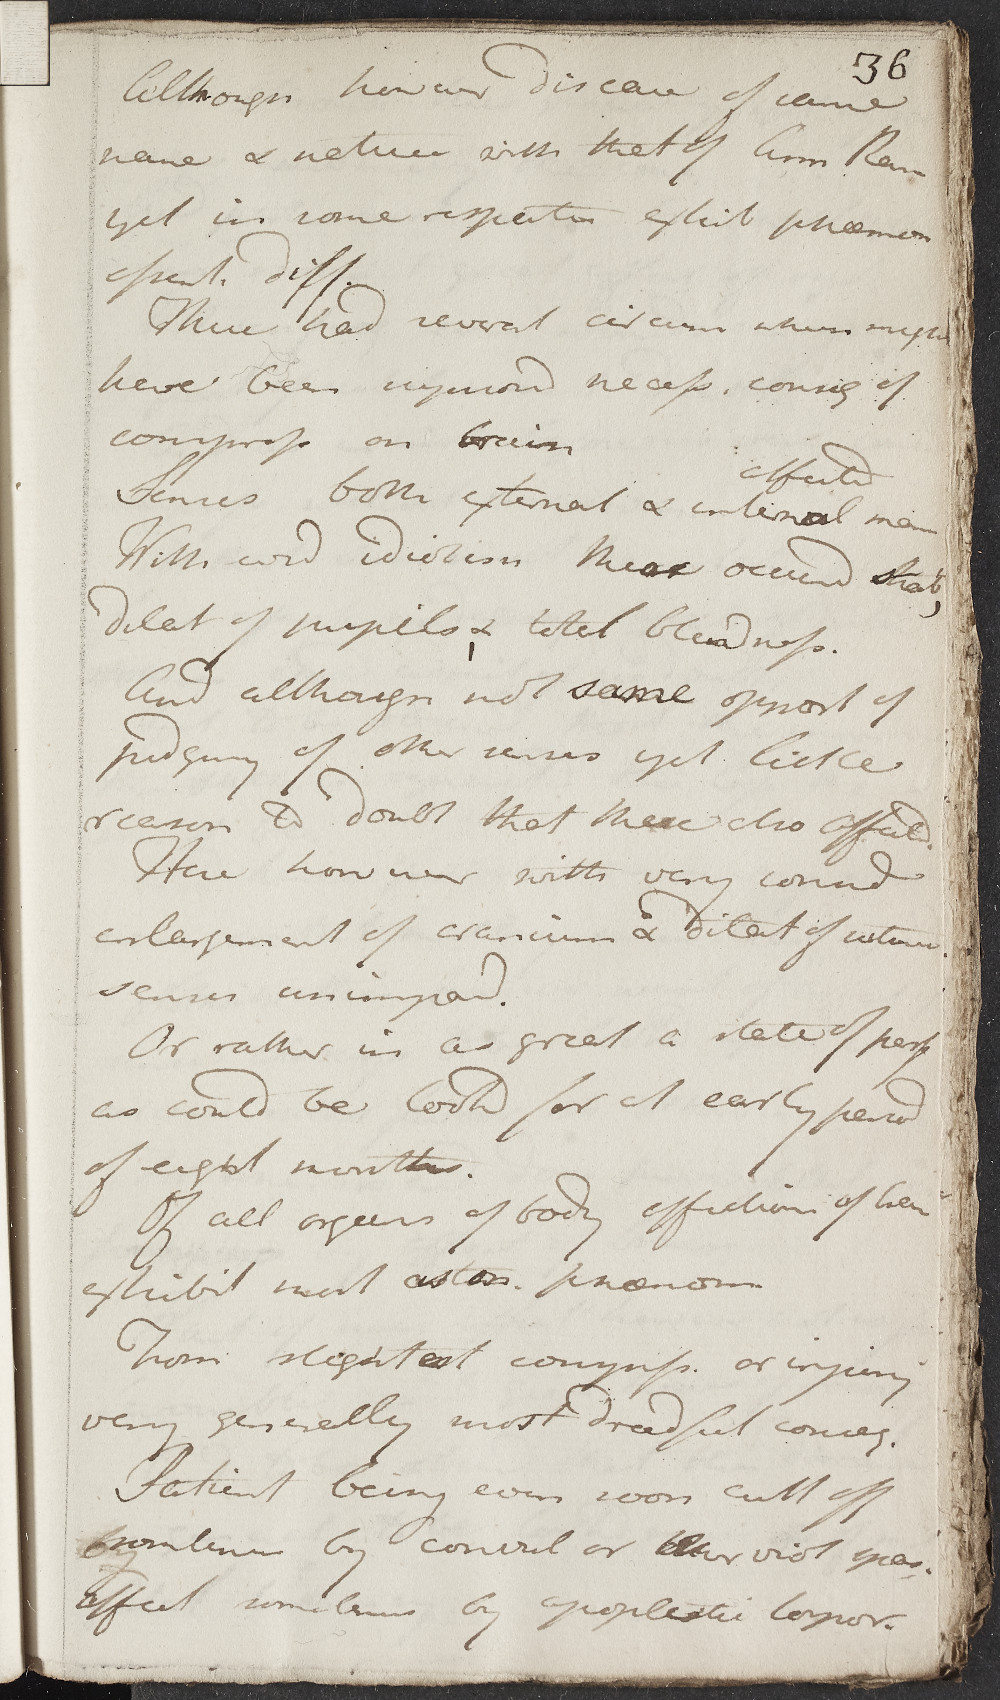 36
Although however disease of same
name & nature with that of Ann Ram
yet in some respects exhib phœnomen
essent. diff.
There had several circum whens might
have been suposed necess. conseq of
compress on brain
affected
Senses both external & internal
With cord idiotism there occurred strab,
dilat of pupils & total blindness.
And although not same opport of
judging of other senses yet little
reason to doubt that these also affected.
Here however with very consid
enlargement of cranium & dilat of sutures
senses unimpard.
Or rather in as great a state of perf
as could be lookd for at early period
of eight months.
Of all organs of body affections of
exhibit most aston. phœnom
From slightest compress. or injury
very generally most dreadful conseq.
Patient being even soon cutt off
sometimes by convul or other viol spas.
affect sometimes by apoplectic torpor.